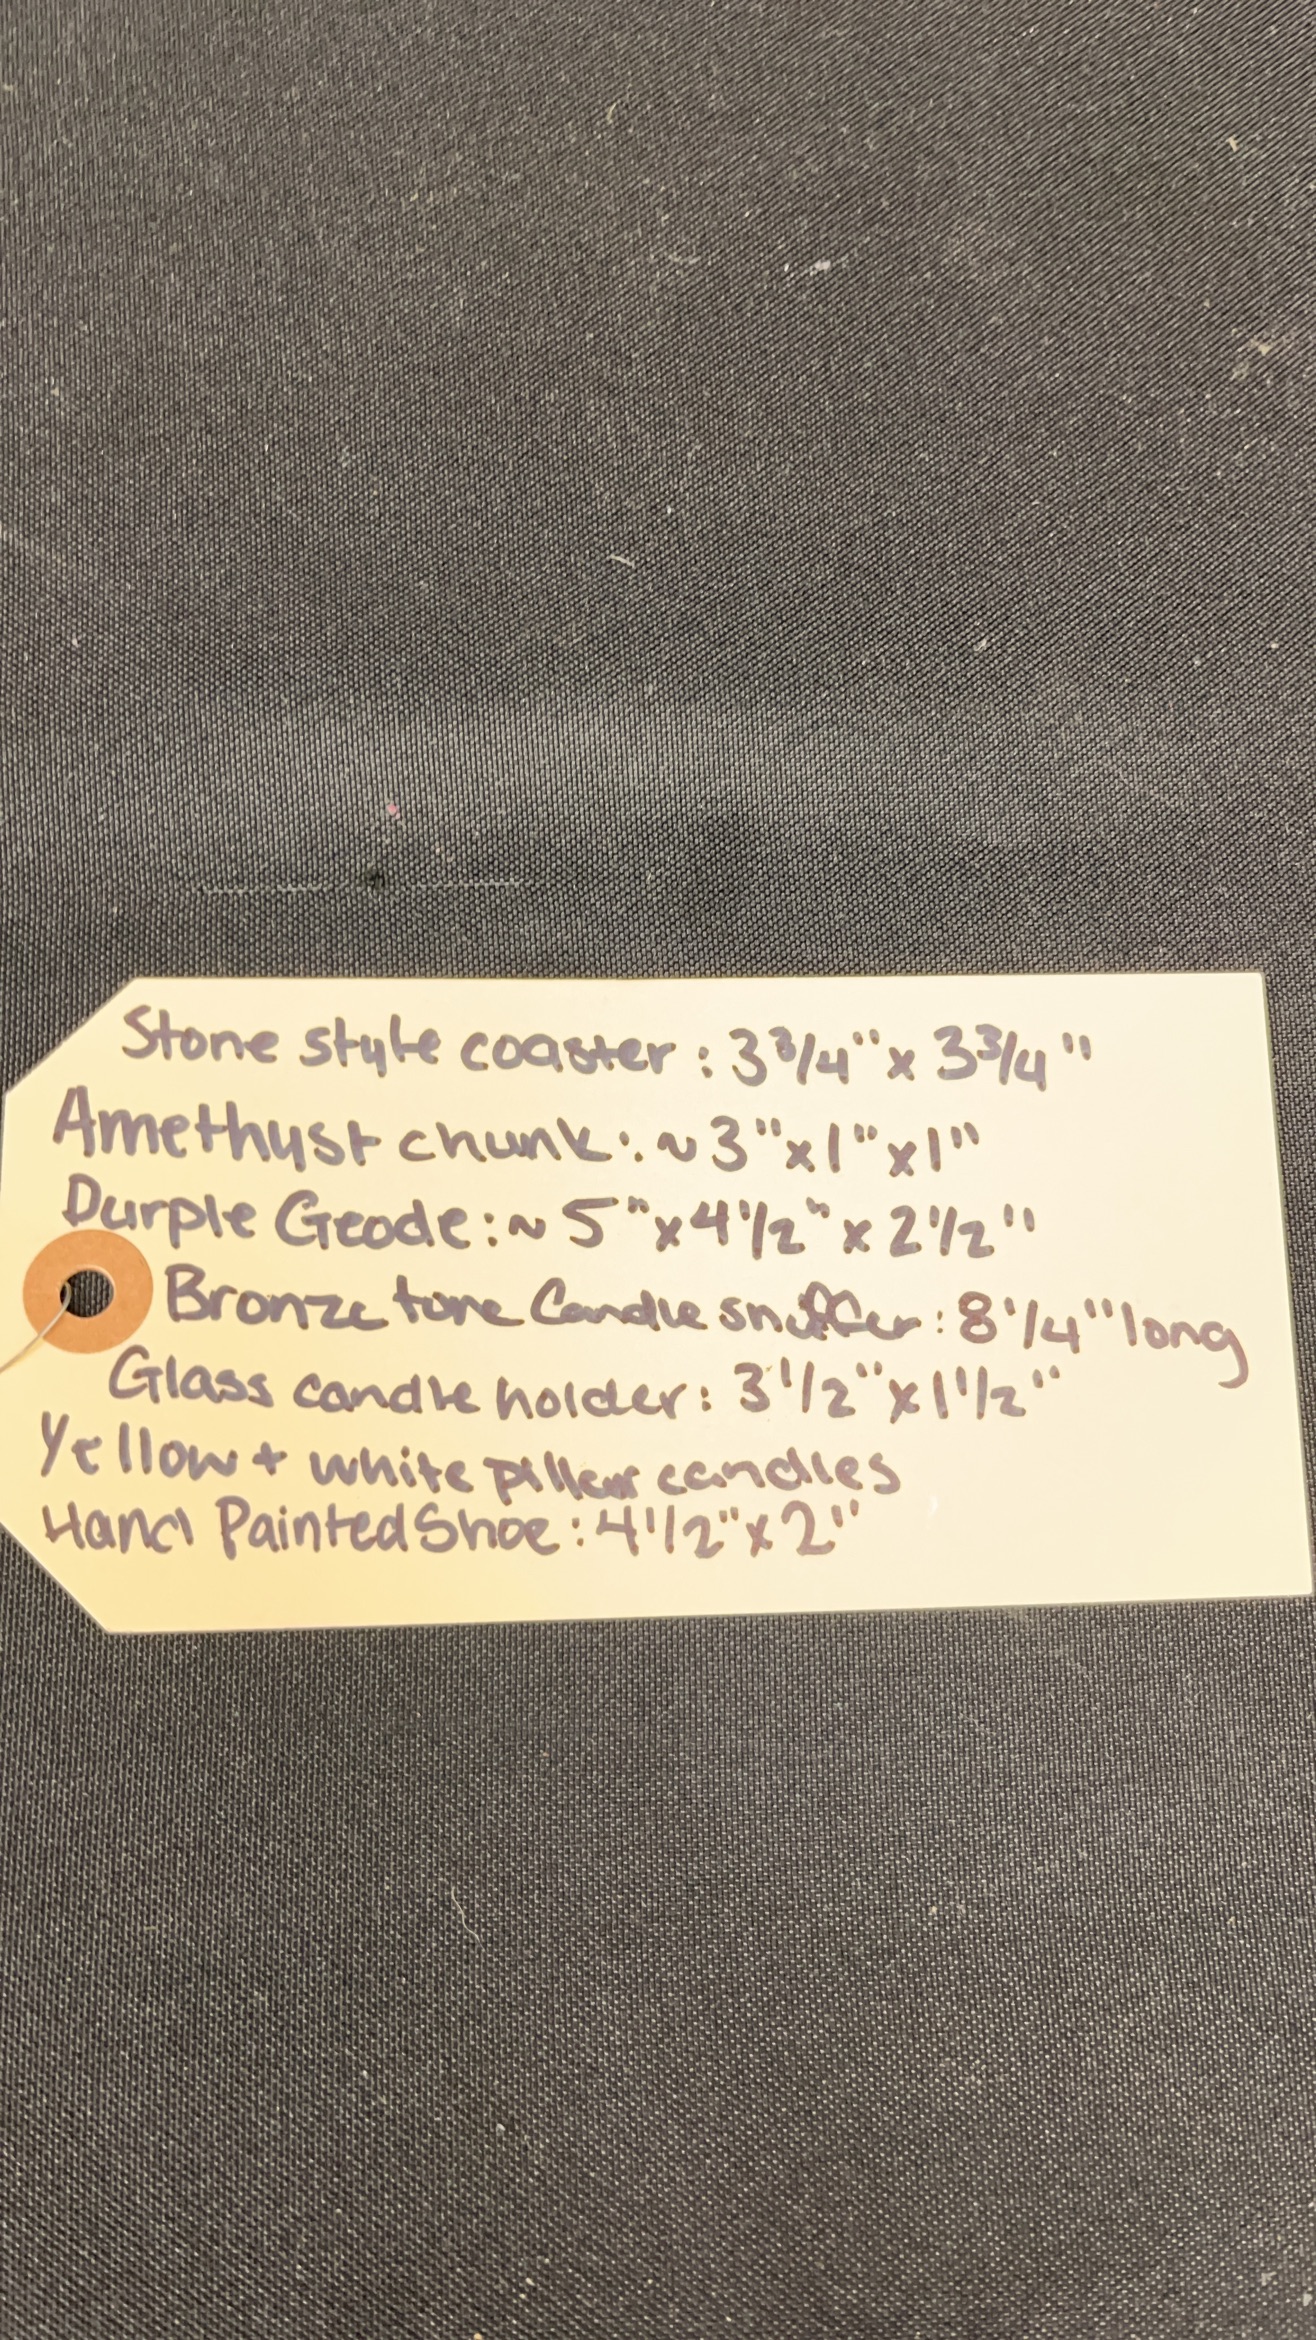 Stone style coaster : 3 3/4" x 3 3/4"
Amethyst chunk: ~3"x1"x1"
Purple Geode: ~ 5"x4 1/2" x 2 1/2"
Bronze tone Candle snuffer: 8 1/4" long
Glass candle holder: 3 1/2"x1 1/2"
Yellow + white pillar candles
Hand Painted Shoe: 4 1/2"x 2"